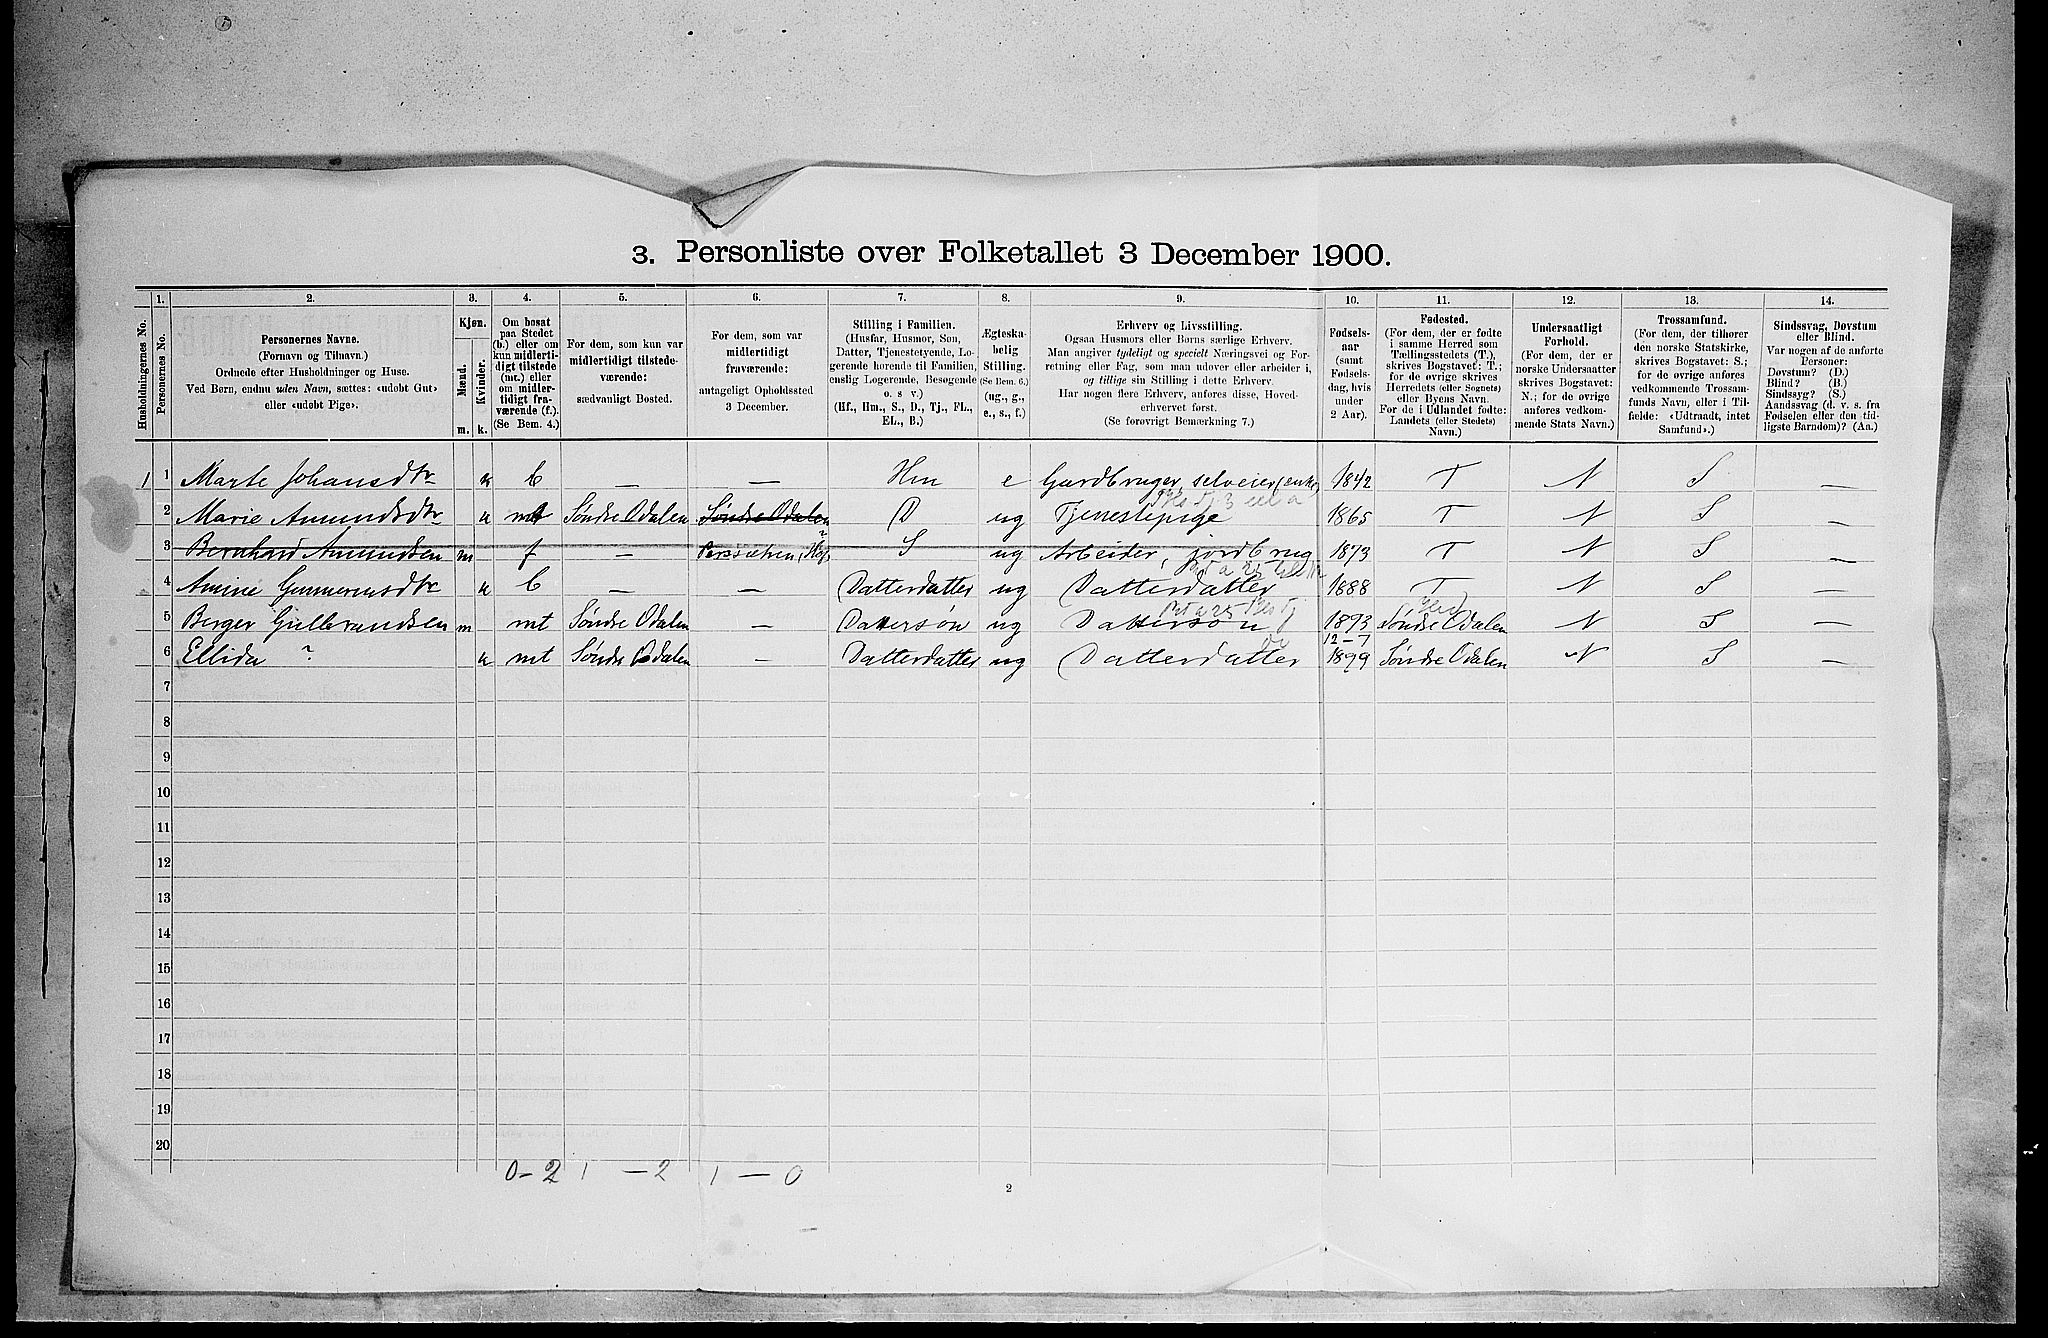 3. Personliste over Folketallet 3 December 1900.
Husholdningernes No.
1. Personernes No.
2. Personernes Navne.
(Fornavn og Tilnavn.)
Ordnede efter Husholdninger og Huse.
Ved Børn, endnu uden Navn, sættes: «udøbt Gut»
eller «udøbt Pige».
3. Kjøn.
Mænd. Kvinder.
m. k.
4. Om bosat
paa Stedet
(b.) eller om
kun midlerti-
digt tilstede
(mt.) eller
om midler-
tidigt fra-
værende (f.).
(Se Bem. 4.)
5. For dem, som kun var
midlertidigt tilstede-
værende:
sædvanligt Bosted.
6. For dem, som var
midlertidigt
fraværende:
antageligt Opholdssted
3 December.
7. Stilling i Familien.
(Husfar, Husmor, Søn,
Datter, Tjenestetyende, Lo-
gerende hørende til Familien,
enslig Logerende, Besøgende
o. s v.)
(Hf., Hm., S., D., Tj., FL.,
EL., B.)
8. Ægteska-
belig
Stilling.
(Se Bem. 6.)
(ug., g.,
e., s., f.)
9. Erhverv og Livsstilling.
Ogsaa Husmors eller Børns særlige Erhverv.
Man angiver tydeligt og specielt Næringsvei og For-
retning eller Fag, som man udøver eller arbeider i,
og tillige sin Stilling i dette Erhverv.
Har nogen flere Erhverv, anføres disse, Hoved-
erhvervet først.
(Se forøvrigt Bemærkning 7.)
10. Fødsels-
aar
(samt
Fødsels-
dag, hvis
under
2 Aar).
11. Fødested.
(For dem, der er fødte
i samme Herred som
Tællingsstedets (T.),
skrives Bogstavet: T.;
for de øvrige skrives
Herredets (eller Sognets)
eller Byens Navn.
For de i Udlandet fødte:
Landets (eller Stedets)
Navn.)
12. Undersaatligt
Forhold.
(For dem, der er
norske Undersaatter
skrives Bogstavet:
N.; for de øvrige
anføres vedkom-
mende Stats Navn.)
13. Trossamfund.
(For dem, der tilhører
den norske Statskirke,
skrives Bogstavet: S.;
for de øvrige anføres
vedkommende Trossam-
funds Navn, eller i Til-
fælde: «Udtraadt, intet
Samfund».)
14. Sindssvag, Døvstum
eller Blind.
Var nogen af de anførte
Personer:
Døvstum? (D.)
Blind? (B.)
Sindssyg? (S.)
Aandssvag (d. v. s. fra
Fødselen eller den tid-
ligste Barndom)? (Aa.)
1 1 Marte Johansdtr k b — — Hm e Gardbruger, selveier, enke 1842 T N S —
2 Marie Amundsdtr k mt Søndre Odalen Søndre Odalen D ug Tjenestepige 1865 T N S —
3 Bernhard Amundsen m f — Hof S ug Arbeider, jordbrug 1873 T N S —
4 Amine Gunnerusdtr k b — — Datterdatter ug Datterdatter 1888 T N S —
5 Berger Gulbrandsen m mt Søndre Odalen — Dattersøn ug Dattersøn 1893 Søndre Odalen N S —
6 Ellida ? k mt Søndre Odalen — Datterdatter ug Datterdatter 12-7 1899 Søndre Odalen N S —
7
8
9
10
11
12
13
14
15
16
17
18
19
20
0-2 1-2 1-0
2